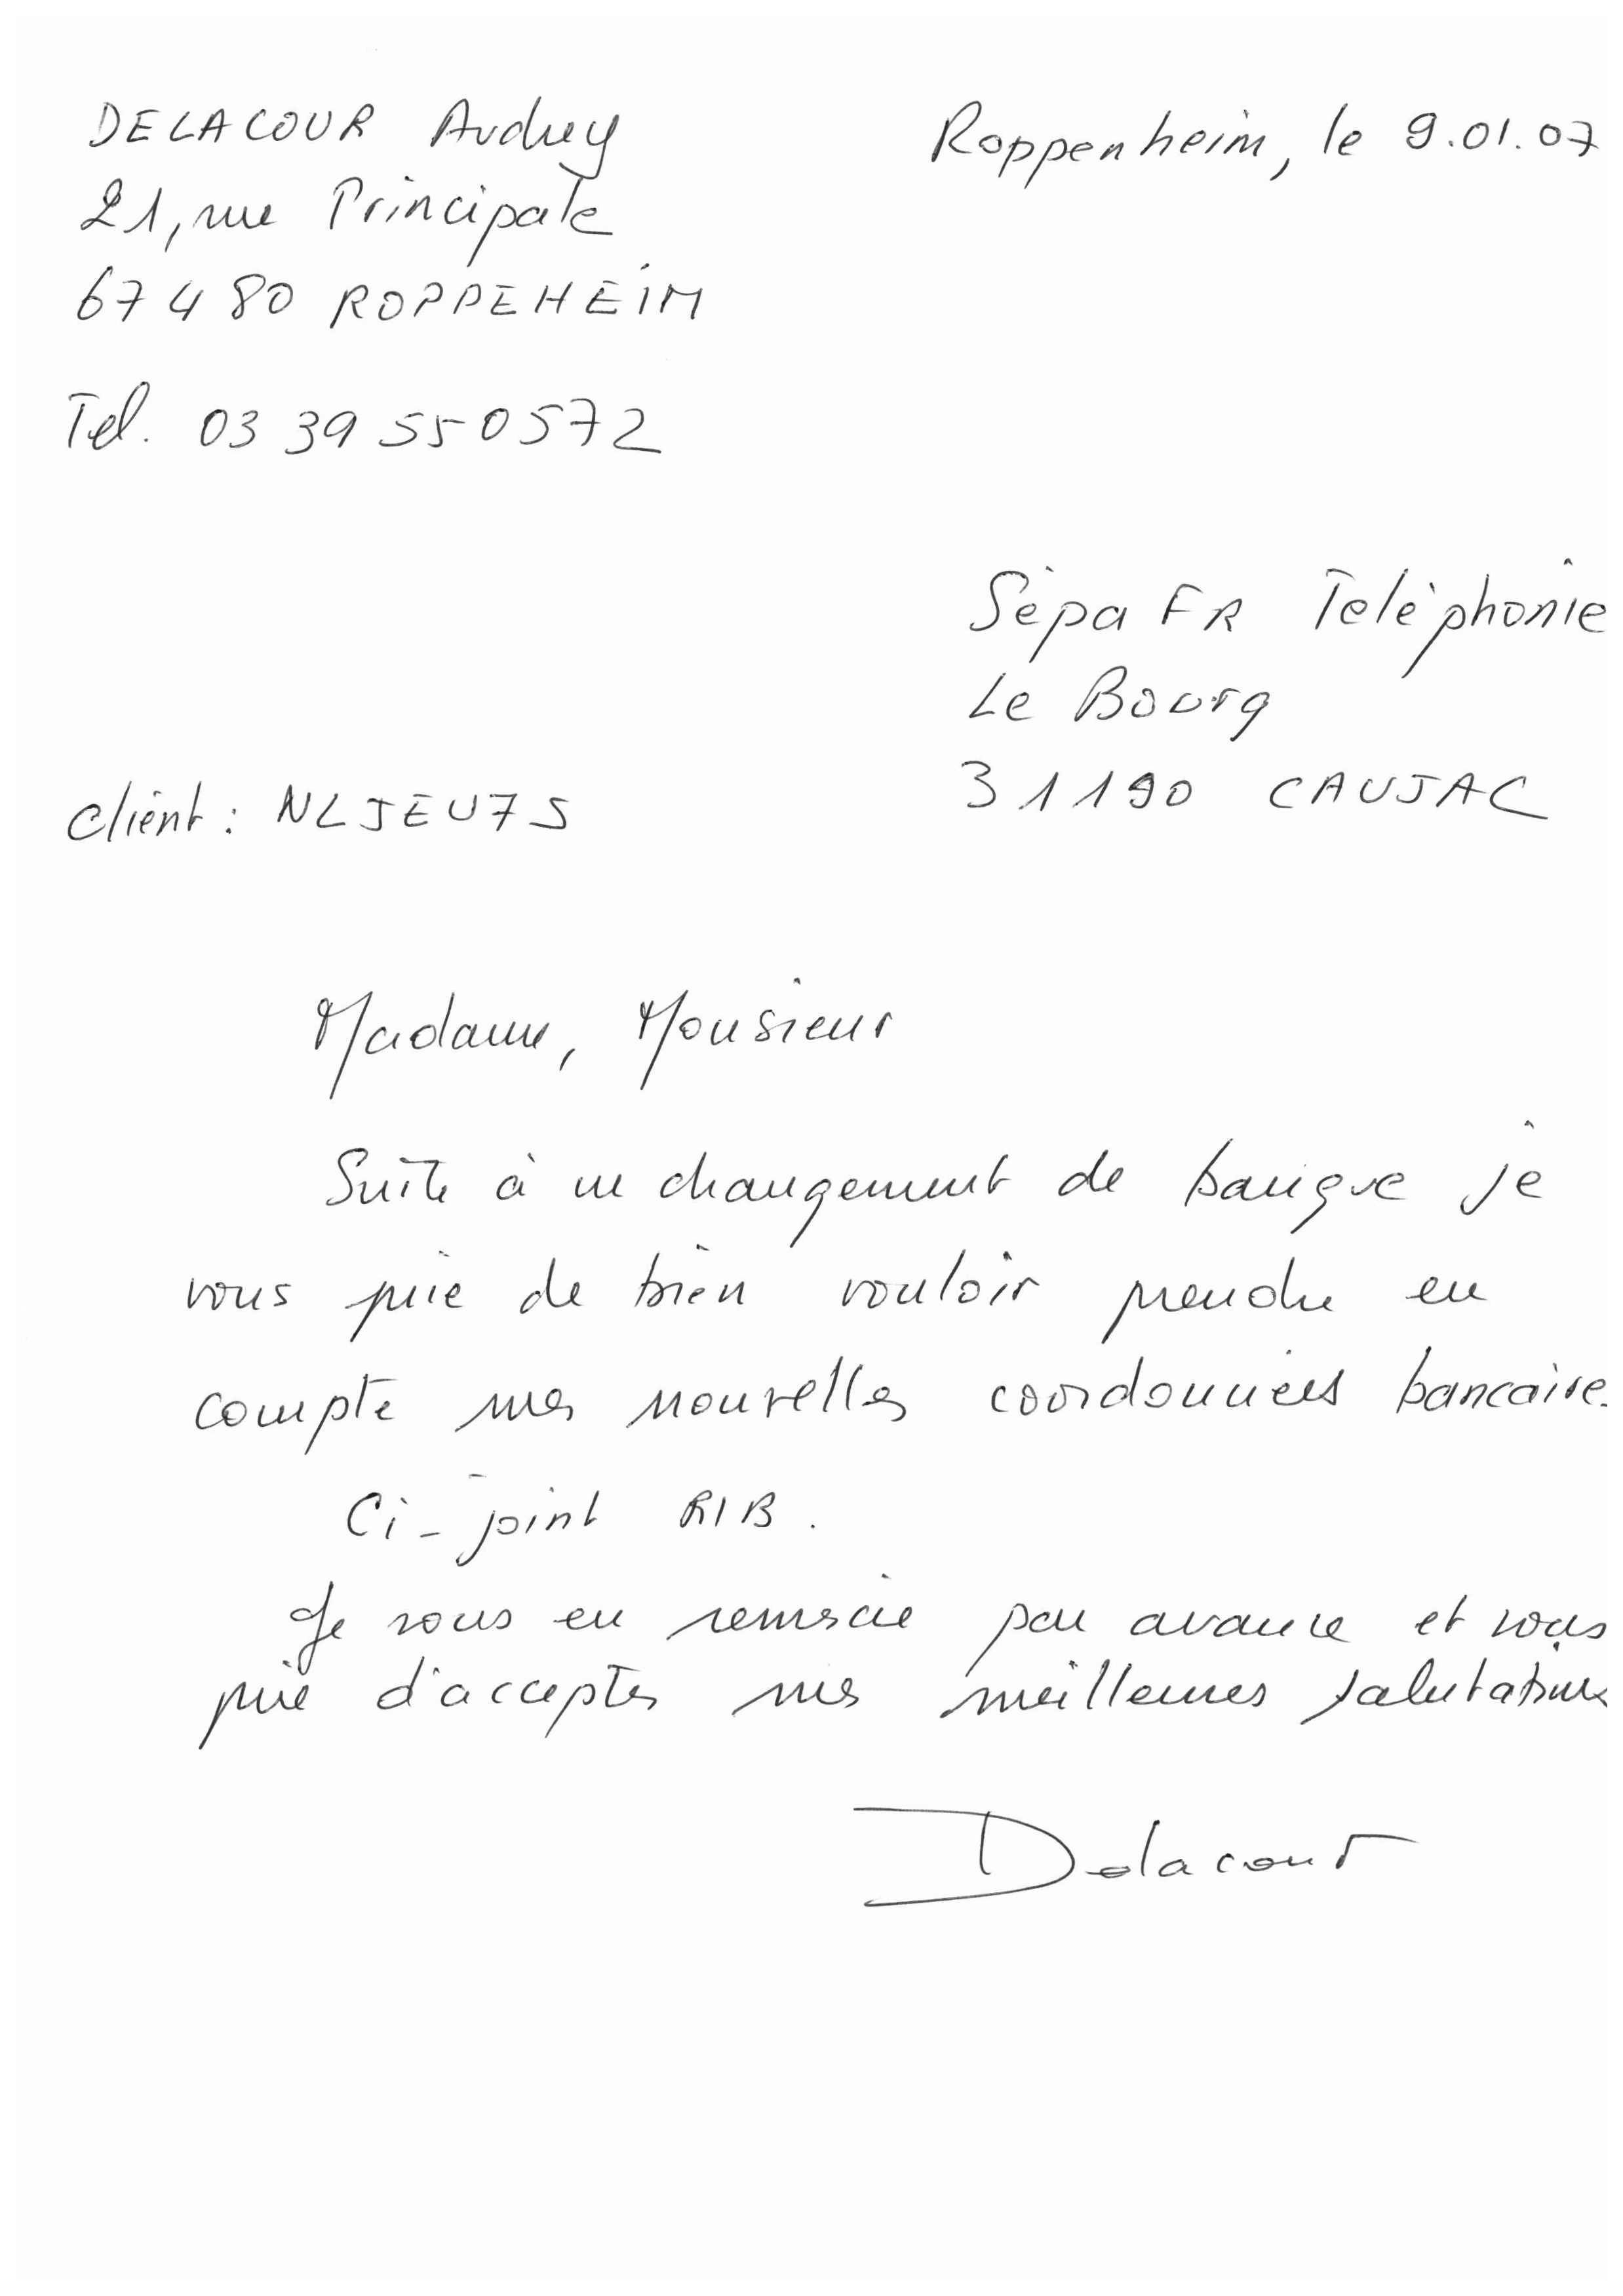 DELACOUR Audrey
Roppenheim, le 9.01.07
21, rue Principale
67480 ROPPEHEIM
Tel. 03 39 55 05 72
Sépa FR Téléphonie
Le Bourg
31190 CAUJAC
Client : NLJEU7S
Madame, Monsieur
Suite à un changement de banque je
vous prie de bien vouloir prendre en
compte mes nouvelles coordonnées bancaire.
Ci-joint RIB.
Je vous en remercie par avance et vous
prie d'accepter mes meilleures salutations
Delacour